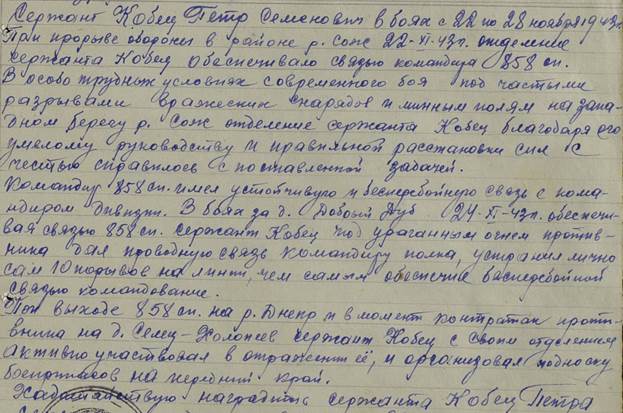 Сержант Кобец Петр Семенович в боях с 22 по 28 ноября 1943г.
При прорыве обороны в районе р. Сож 22-XI-43г. отделение
сержанта Кобец обеспечивало связью командира 858 сп.
В особо трудных условиях современного боя под частыми
разрывами вражеских снарядов и минным полям на запа-
дном берегу р. Сож отделение сержанта Кобец благодаря его
умелому руководству и правильной расстановки сил с
честью справилось с поставленной задачей.
Командир 858 сп. имел устойчивую и бесперебойную связь с кома-
ндиром дивизии. В боях за д. Добрый Дуб 24-XI-43г. обеспечи-
вая связью 858 сп. сержант Кобец под ураганным огнем против-
ника дал проводную связь командиру полка, устранил лично
сам 10 порывов на линии, чем самым обеспечив бесперебойной
связью командование.
При выходе 858 сп. на р. Днепр и в момент контратак проти-
вника на д. Селец-Холопеев сержант Кобец с своим отделением
активно участвовал в отражении её, и организовал подноску
боеприпасов на передний край.
Ходатайствую наградить сержанта Кобец Петра